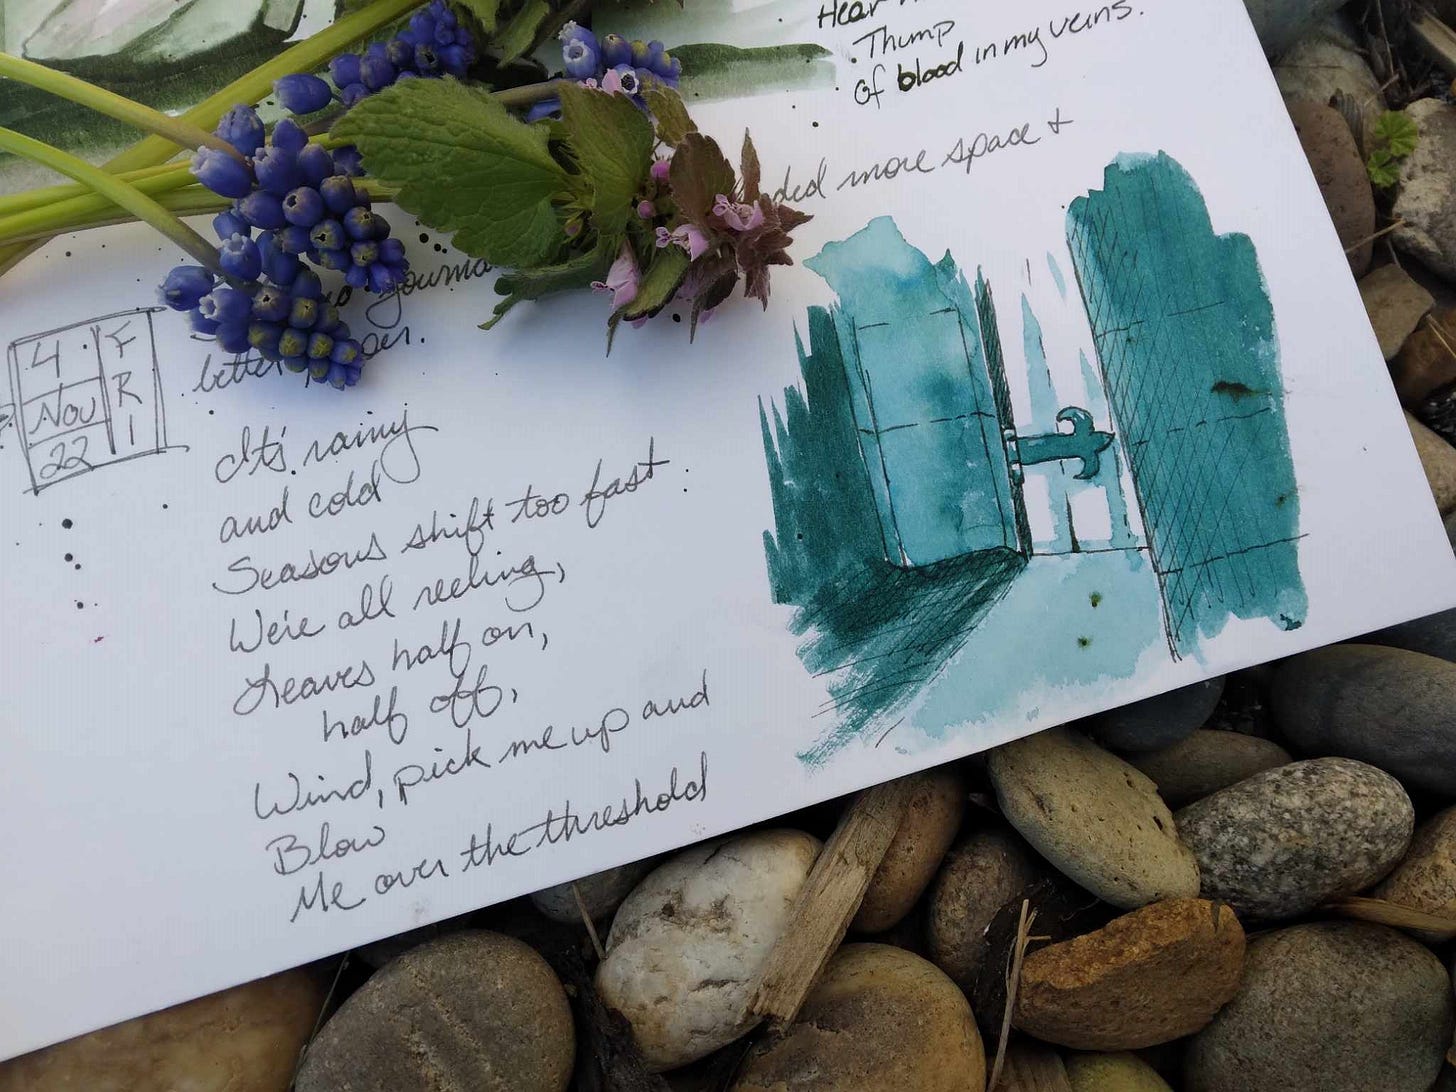 Thump
Of blood in my veins.
more space +
4 Nov 22 FRI
It's rainy
and cold
Seasons shift too fast.
We're all reeling,
Leaves half on,
half off,
Wind, pick me up and
Blow
Me over the threshold